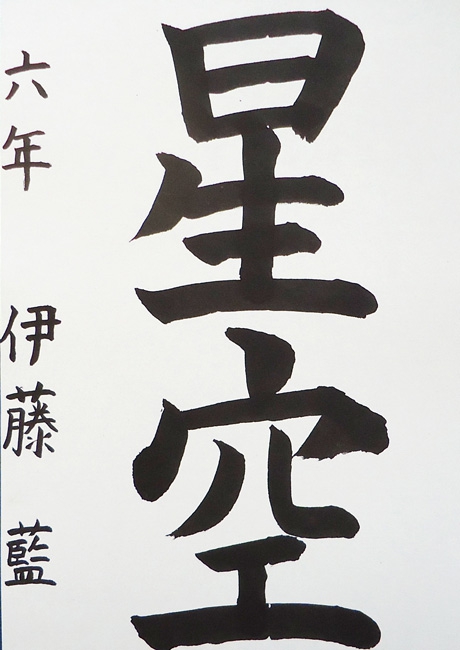 星空
六年 伊藤 藍